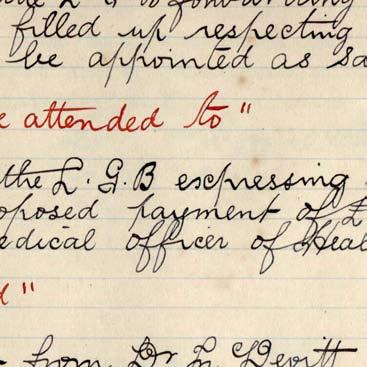 filled up respecting
be appointed as sa
e attended to"
the L. G. B expressing
oposed payment of £
edical officer of Heal
d"
from Dr